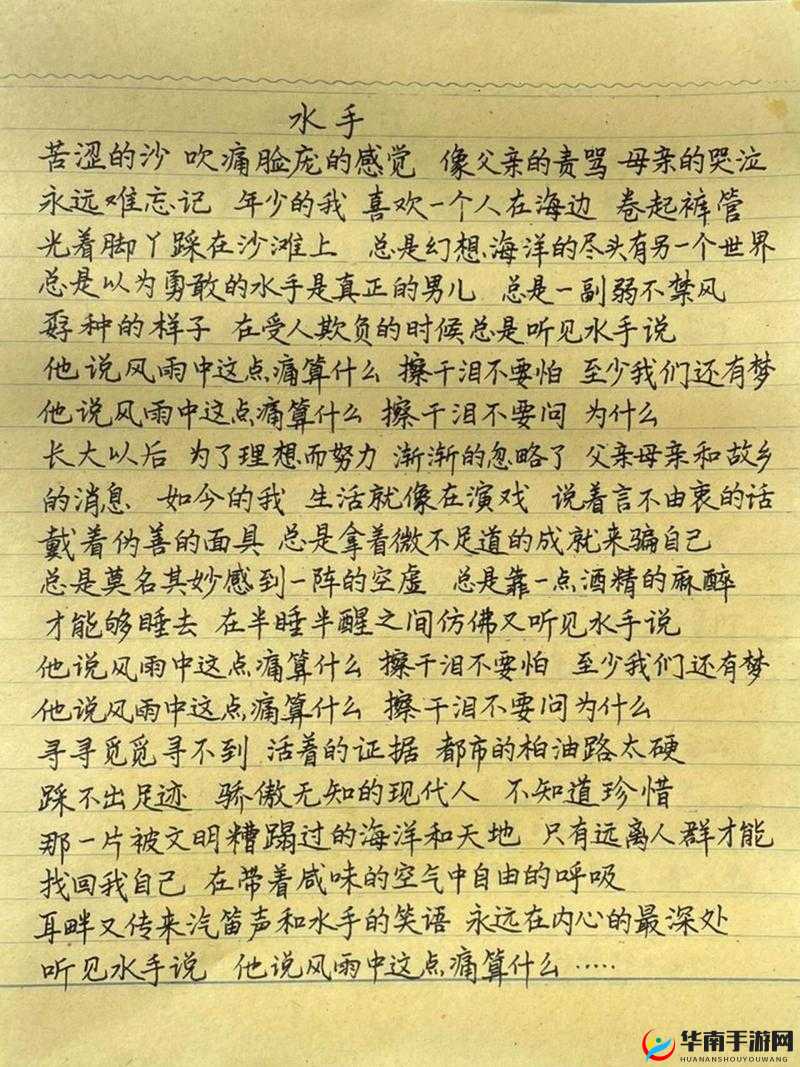 水手
苦涩的沙 吹痛脸庞的感觉 像父亲的责骂 母亲的哭泣
永远难忘记 年少的我 喜欢一个人在海边 卷起裤管
光着脚丫踩在沙滩上 总是幻想海洋的尽头有另一个世界
总是以为勇敢的水手是真正的男儿 总是一副弱不禁风
孬种的样子 在受人欺负的时候总是听见水手说
他说风雨中这点痛算什么 擦干泪不要怕 至少我们还有梦
他说风雨中这点痛算什么 擦干泪不要问 为什么
长大以后 为了理想而努力 渐渐的忽略了 父亲母亲和故乡
的消息 如今的我 生活就像在演戏 说着言不由衷的话
戴着伪善的面具 总是拿着微不足道的成就来骗自己
总是莫名其妙感到一阵的空虚 总是靠一点酒精的麻醉
才能够睡去 在半睡半醒之间仿佛又听见水手说
他说风雨中这点痛算什么 擦干泪不要怕 至少我们还有梦
他说风雨中这点痛算什么 擦干泪不要问为什么
寻寻觅觅寻不到 活着的证据 都市的柏油路太硬
踩不出足迹 骄傲无知的现代人 不知道珍惜
那一片被文明糟蹋过的海洋和天地 只有远离人群才能
找回我自己 在带着咸味的空气中自由的呼吸
耳畔又传来汽笛声和水手的笑语 永远在内心的最深处
听见水手说 他说风雨中这点痛算什么 ……
华南手游网
HUANANSHOUYOUWANG